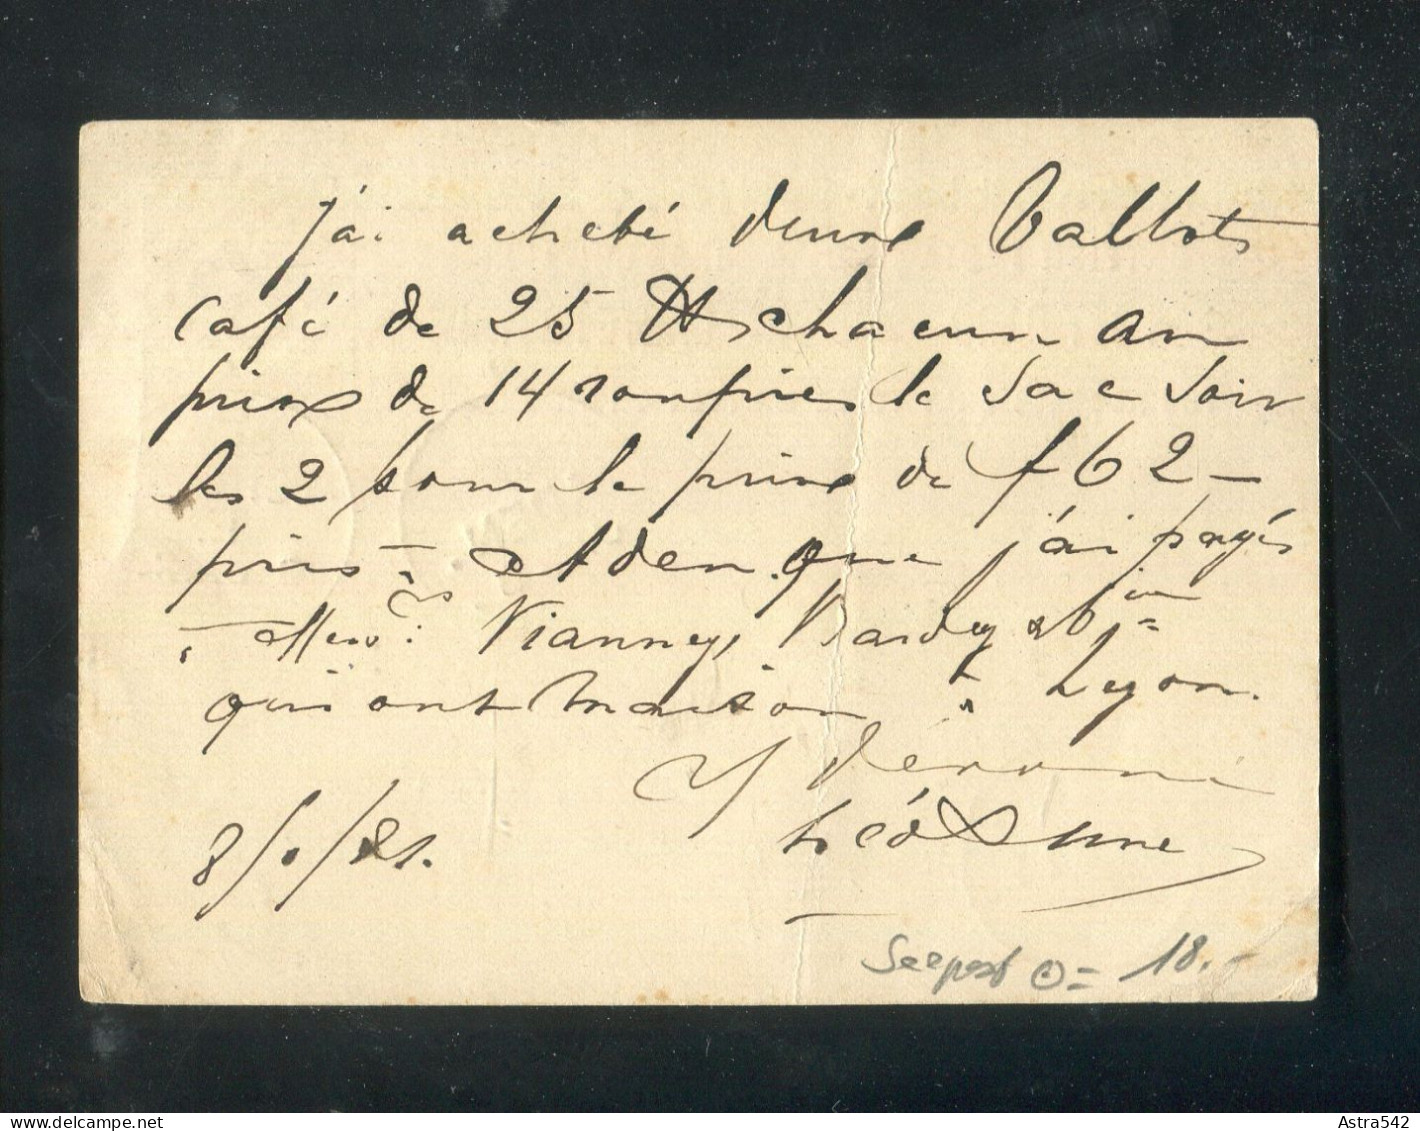 j'ai acheté deux Ballots
café de 25 ℔ chacun au
prix de 14 roupies le sac soir
les 2 pour le prix de f 62 –
pris à Aden que j'ai payés
à Mess.rs Vianney, Bardey &
qui ont maison à Lyon.
8/ /81.
Seepost = 18.-
www.delcampe.net
Astra542